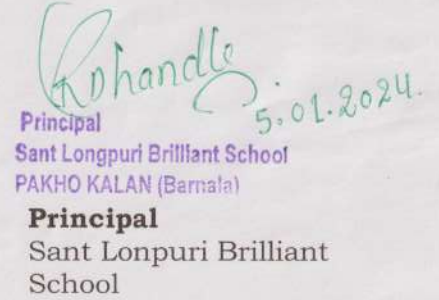 5.01.2024.
Principal
Sant Longpuri Brilliant School
PAKHO KALAN (Barnala)
Principal
Sant Lonpuri Brilliant
School